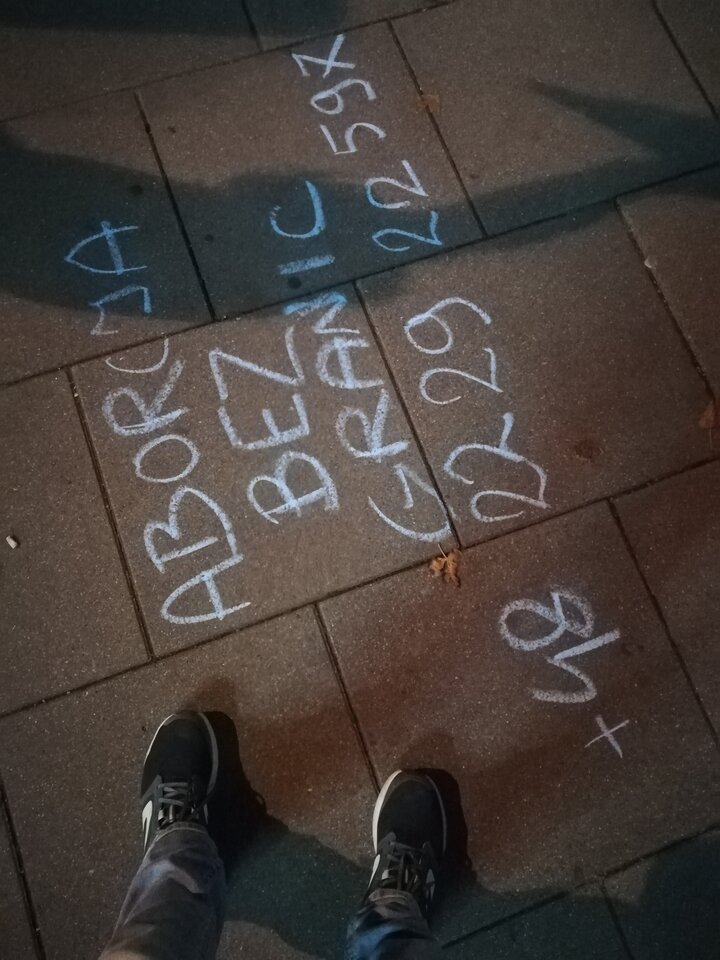 ABORCJA
BEZ
GRANIC
+48 22 29 22 597